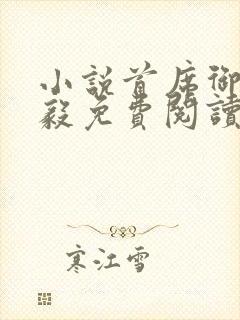 小説首席御
毅免費閱讀
寒江雪